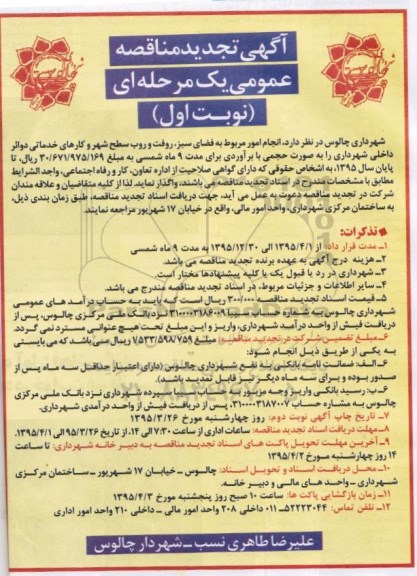 آگهی تجدید مناقصه
عمومی یک مرحله‌ای
(نوبت اول)
شهرداری چالوس در نظر دارد، انجام امور مربوط به فضای سبز، رفت و روب سطح شهر و کارهای خدماتی دوائر
داخلی شهرداری را به صورت حجمی با برآوردی برای مدت ۹ ماه شمسی به مبلغ ۳۰/۶۷۱/۹۷۵/۱۶۹ ریال، تا
پایان سال ۱۳۹۵، به اشخاص حقوقی که دارای گواهی صلاحیت از اداره تعاون، کار و رفاه اجتماعی، واجد الشرایط
مطابق با مشخصات مندرج در اسناد تجدید مناقصه می باشند، واگذار نماید. لذا از کلیه متقاضیان و علاقه مندان
شرکت در تجدید مناقصه دعوت به عمل می آید، جهت دریافت اسناد تجدید مناقصه، طبق زمان بندی ذیل،
به ساختمان مرکزی شهرداری، واحد امور مالی، واقع در خیابان ۱۷ شهریور مراجعه نمایند.
تذکرات:
۱ـ مدت قرار داد: از ۱۳۹۵/۴/۱ الی ۱۳۹۵/۱۲/۳۰ به مدت ۹ ماه شمسی
۲ـ هزینه درج آگهی به عهده برنده تجدید مناقصه می باشد.
۳ـ شهرداری در رد یا قبول یک یا کلیه پیشنهادها مختار است.
۴ـ سایر اطلاعات و جزئیات مربوط، در اسناد تجدید مناقصه مندرج می باشد.
۵ـ قیمت اسناد تجدید مناقصه ۳۰۰/۰۰۰ ریال است که باید به حساب درآمد های عمومی
شهرداری چالوس به شماره حساب نزد بانک ملی مرکزی چالوس، پس از
دریافت فیش از واحد درآمد شهرداری، واریز و این مبلغ تحت هیچ عنوانی مسترد نمی گردد.
۶ـ مبلغ تضمین شرکت در تجدید مناقصه: مبلغ ۱/۵۳۳/۵۹۸/۷۵۹ ریال می باشد که می بایستی
به یکی از طریق ذیل انجام شود:
۶ـ الف: ضمانت نامه بانکی به نفع شهرداری چالوس (دارای اعتبار حداقل سه ماه پس از
صدور بوده و برای سه ماه دیگر نیز قابل تمدید باشد).
۶ـ ب: رسید بانکی واریز وجه مزبور به حساب سپرده شهرداری نزد بانک ملی مرکزی
چالوس به شماره حساب ۳۱۰۰۰۰۳۱۸۷۰۰۷، پس از دریافت فیش از واحد درآمدی شهرداری.
۷ـ تاریخ چاپ آگهی نوبت دوم: روز چهارشنبه مورخ ۱۳۹۵/۳/۲۶
۸ـ مهلت دریافت اسناد مناقصه: ساعات اداری از ساعت ۷:۳۰ الی ۱۴، از تاریخ ۹۵/۳/۲۶ الی ۱۳۹۵/۴/۱.
۹ـ آخرین مهلت تحویل پاکت های اسناد تجدید مناقصه به دبیر خانه شهرداری: تا ساعت
۱۴ روز چهارشنبه مورخ ۱۳۹۵/۴/۲
۱۰ـ محل دریافت اسناد و تحویل اسناد: چالوس ـ خیابان ۱۷ شهریور ـ ساختمان مرکزی
شهرداری ـ واحد های مالی و دبیر خانه.
۱۱ـ زمان بازگشایی پاکت ها: ساعت ۱۰ صبح روز پنجشنبه مورخ ۱۳۹۵/۴/۳
۱۲ـ تلفن تماس: ۵۲۲۲۳۰۴۴ـ۰۱۱ داخلی ۲۰۸ واحد امور مالی ـ داخلی ۲۱۰ واحد امور اداری
علیرضا طاهری نسب ـ شهردار چالوس